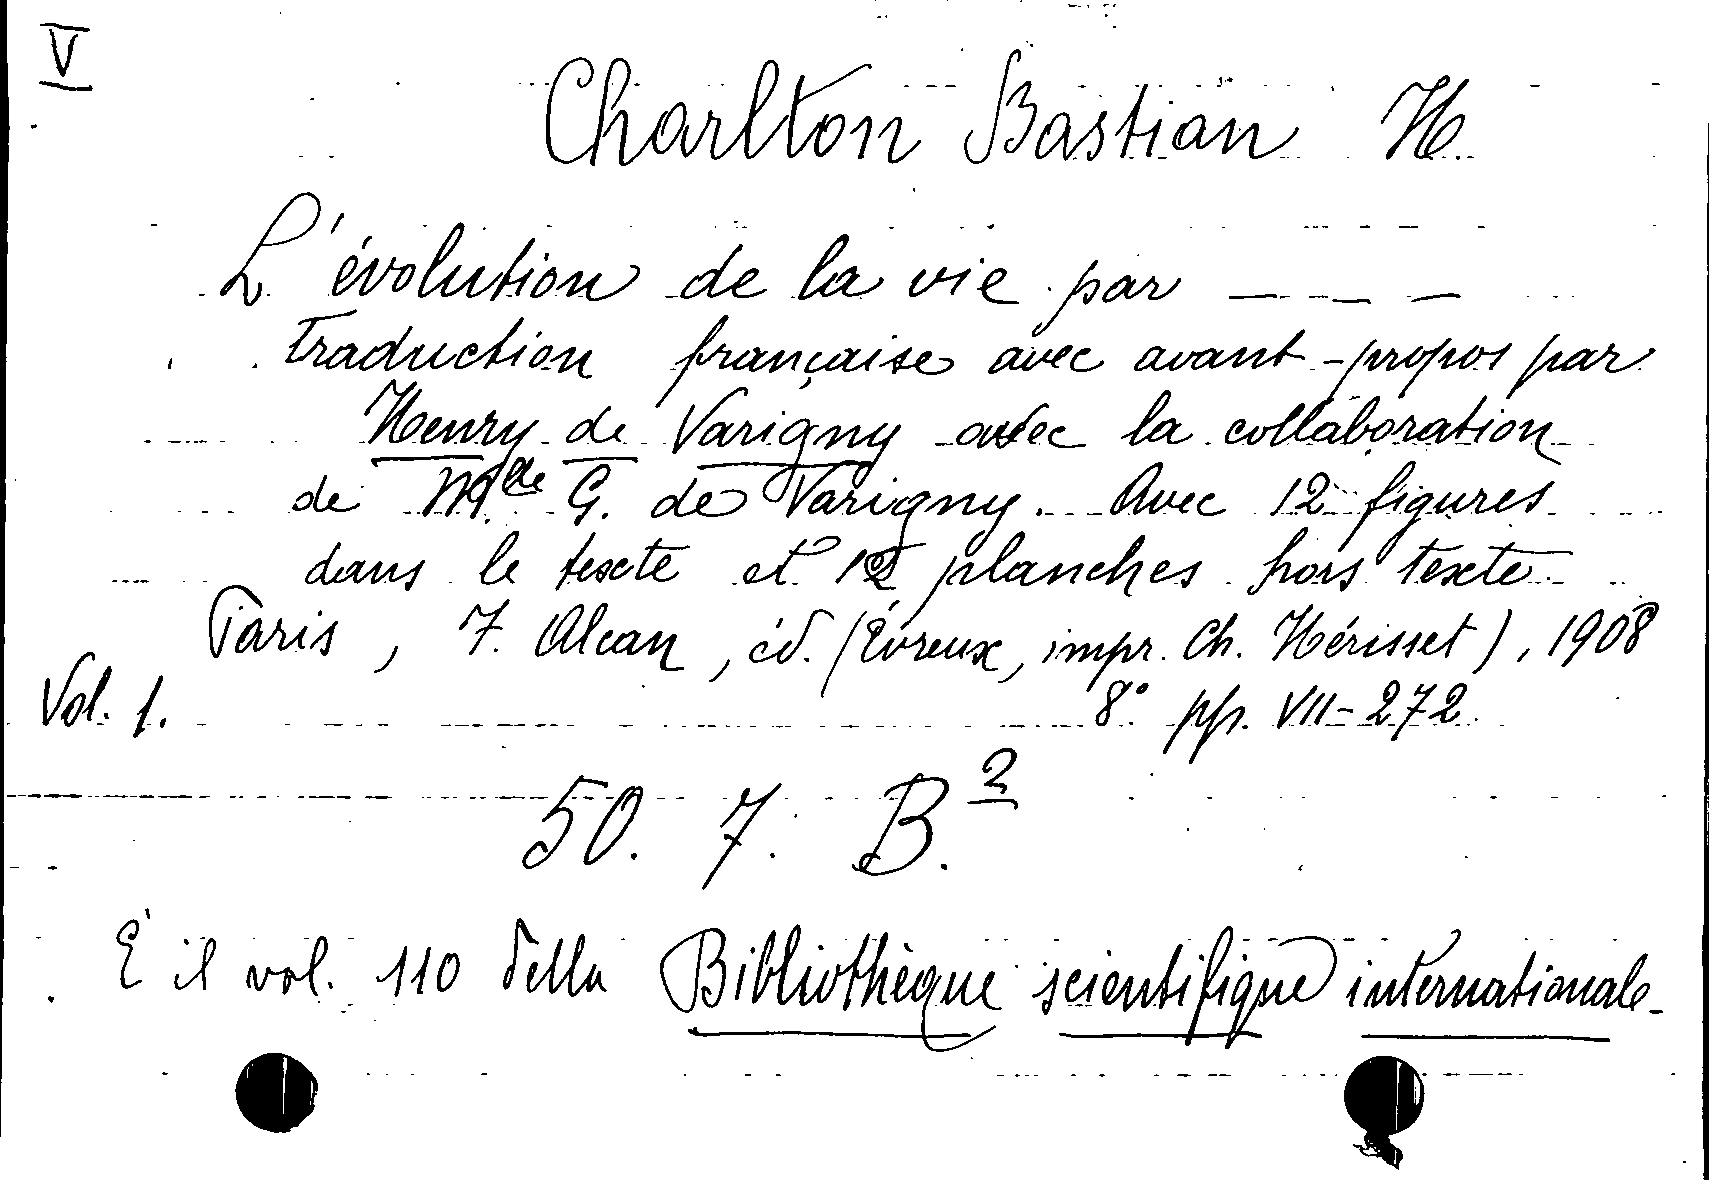 V
Charlton Bastian H.
L'évolution de la vie par — — — —
Traduction française avec avant-propos par
Henry de Varigny avec la collaboration
de M.de G. de Varigny. Avec 12 figures
dans le texte et 12 planches hors texte
Paris, F. Alcan, éd. (Évreux, impr. Ch. Hérisset), 1908
Vol. 1. 8° pp. VII-272
50. 7. B.2
E' il vol. 110 della Bibliothèque scientifique internationale.